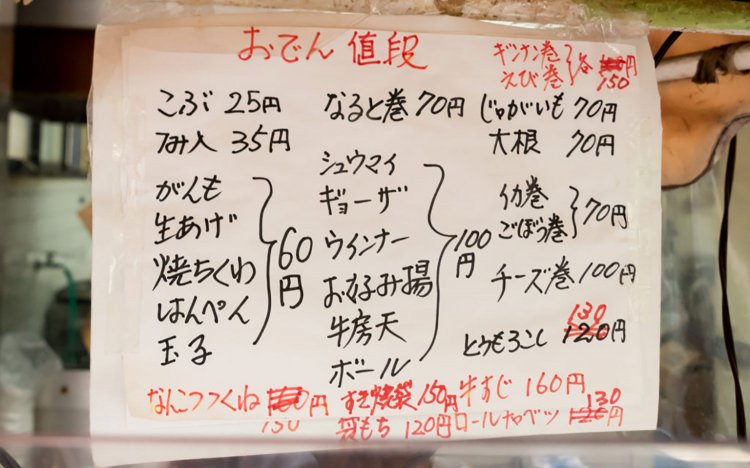 おでん 値段
ギンナン巻
えび巻 各 150円
こぶ 25円
なると巻 70円
じゃがいも 70円
つみ入 35円
大根 70円
がんも
生あげ
焼ちくわ
はんぺん
玉子
60円
シュウマイ
ギョーザ
ウインナー
お好み揚
牛房天
ボール
100円
イカ巻
ごぼう巻
70円
チーズ巻 100円
130
とうもろこし 120円
なんこつつくね 円
130
すき焼袋 150円
牛すじ 160円
袋もち 120円
130
ロールキャベツ 120円